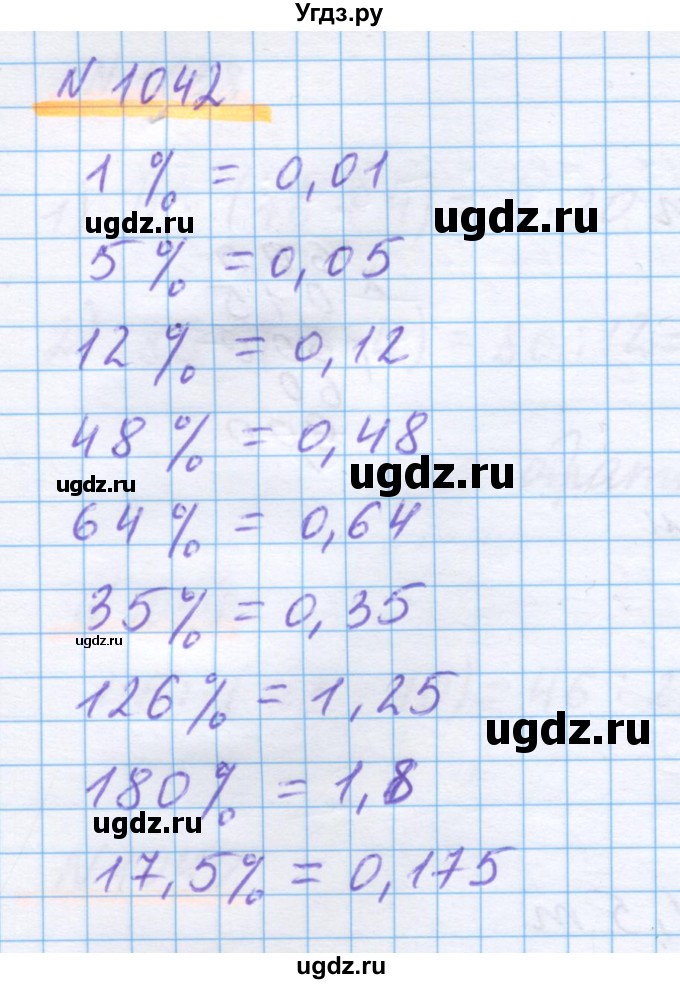 Угдз.ру
N 1042
1 % = 0,01
ugdz.ru ugdz.ru
5 % = 0,05
12 % = 0,12
48 % = 0,48
ugdz.ru ugdz.ru
64 % = 0,64
35 % = 0,35
ugdz.ru
126 % = 1,25
ugdz.ru
180 % = 1,8
ugdz.ru
17,5 % = 0,175
ugdz.ru